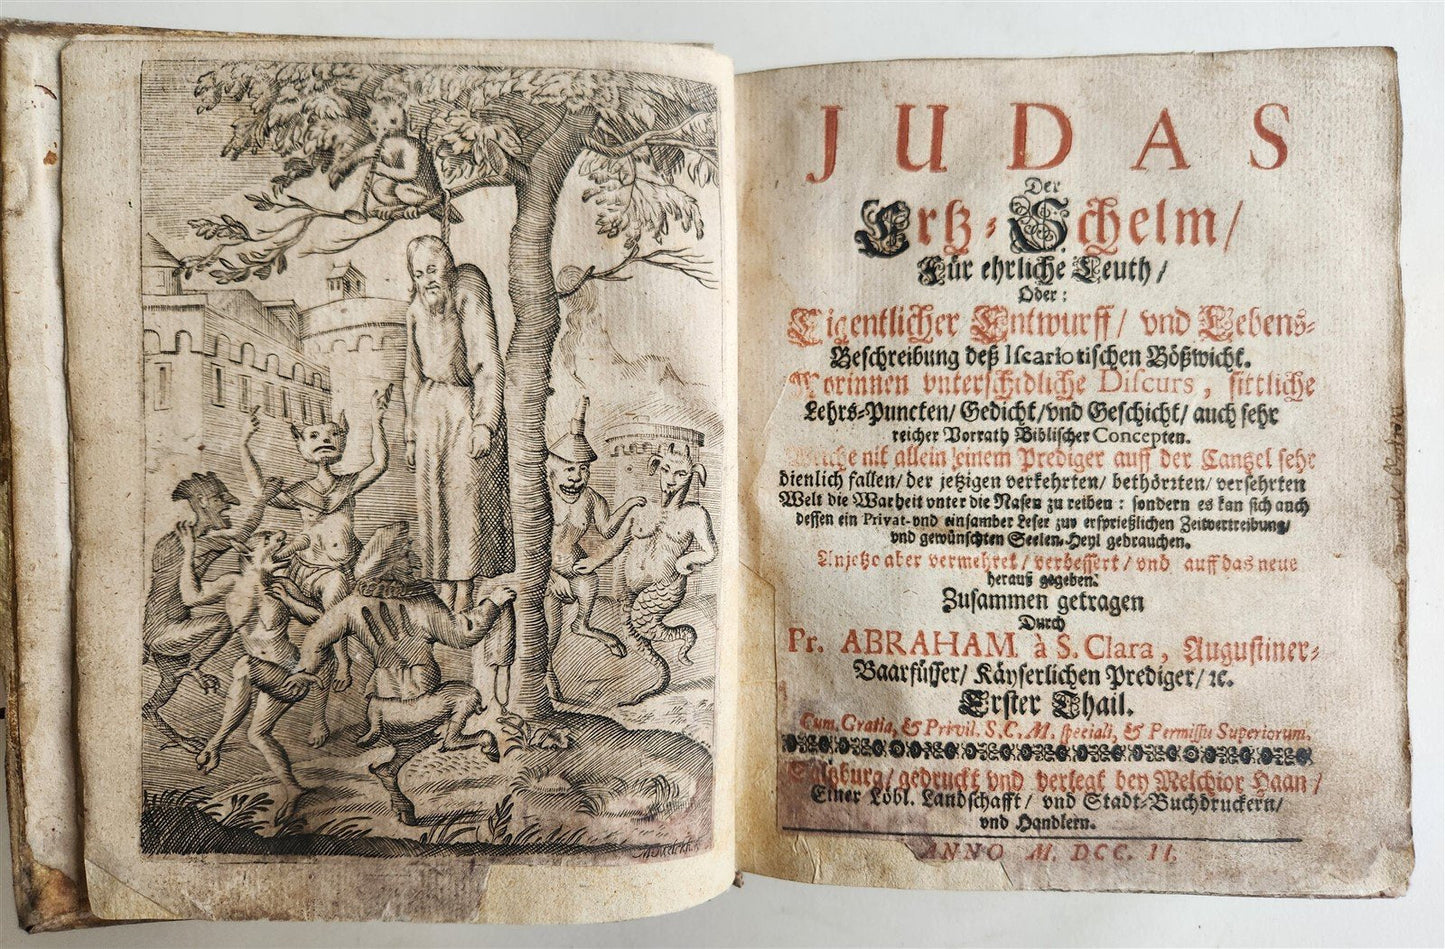 JUDAS
Der
Ertz-Schelm/
Für ehrliche Leuth/
Oder:
Eigentlicher Entwurff/ vnd Lebens-
Beschreibung deß Iscariotischen Bößwicht.
Worinnen vnterschidliche Discurs, sittliche
Lehrs-Puncten/ Gedicht/ vnd Geschicht/ auch sehr
reicher Vorrath Biblischer Concepten.
Welche nit allein einem Prediger auff der Cantzel sehr
dienlich fallen/ der jetzigen verkehrten/ bethörrten/ versehrten
Welt die Warheit vnter die Nasen zu reiben: sondern es kan sich auch
dessen ein Privat- vnd einsamber Leser zur ersprießlichen Zeitvertreibung/
vnd gewünschten Seelen-Heyl gebrauchen.
Anjetzo aber vermehret/ verbessert/ vnd auff das neue
herauß gegeben.
Zusammen getragen
Durch
Pr. ABRAHAM à S. Clara, Augustiner-
Baarfüsser/ Käyserlichen Prediger/ ꝛc.
Erster Thail.
Cum Gratia, & Privil. S. C. M. speciali, & Permissu Superiorum.
Saltzburg/ gedruckt vnd verlegt bey Melchior Haan/
Einer Löbl. Landschafft/ vnd Stadt-Buchdruckern/
vnd Handlern.
ANNO M. DCC. II.